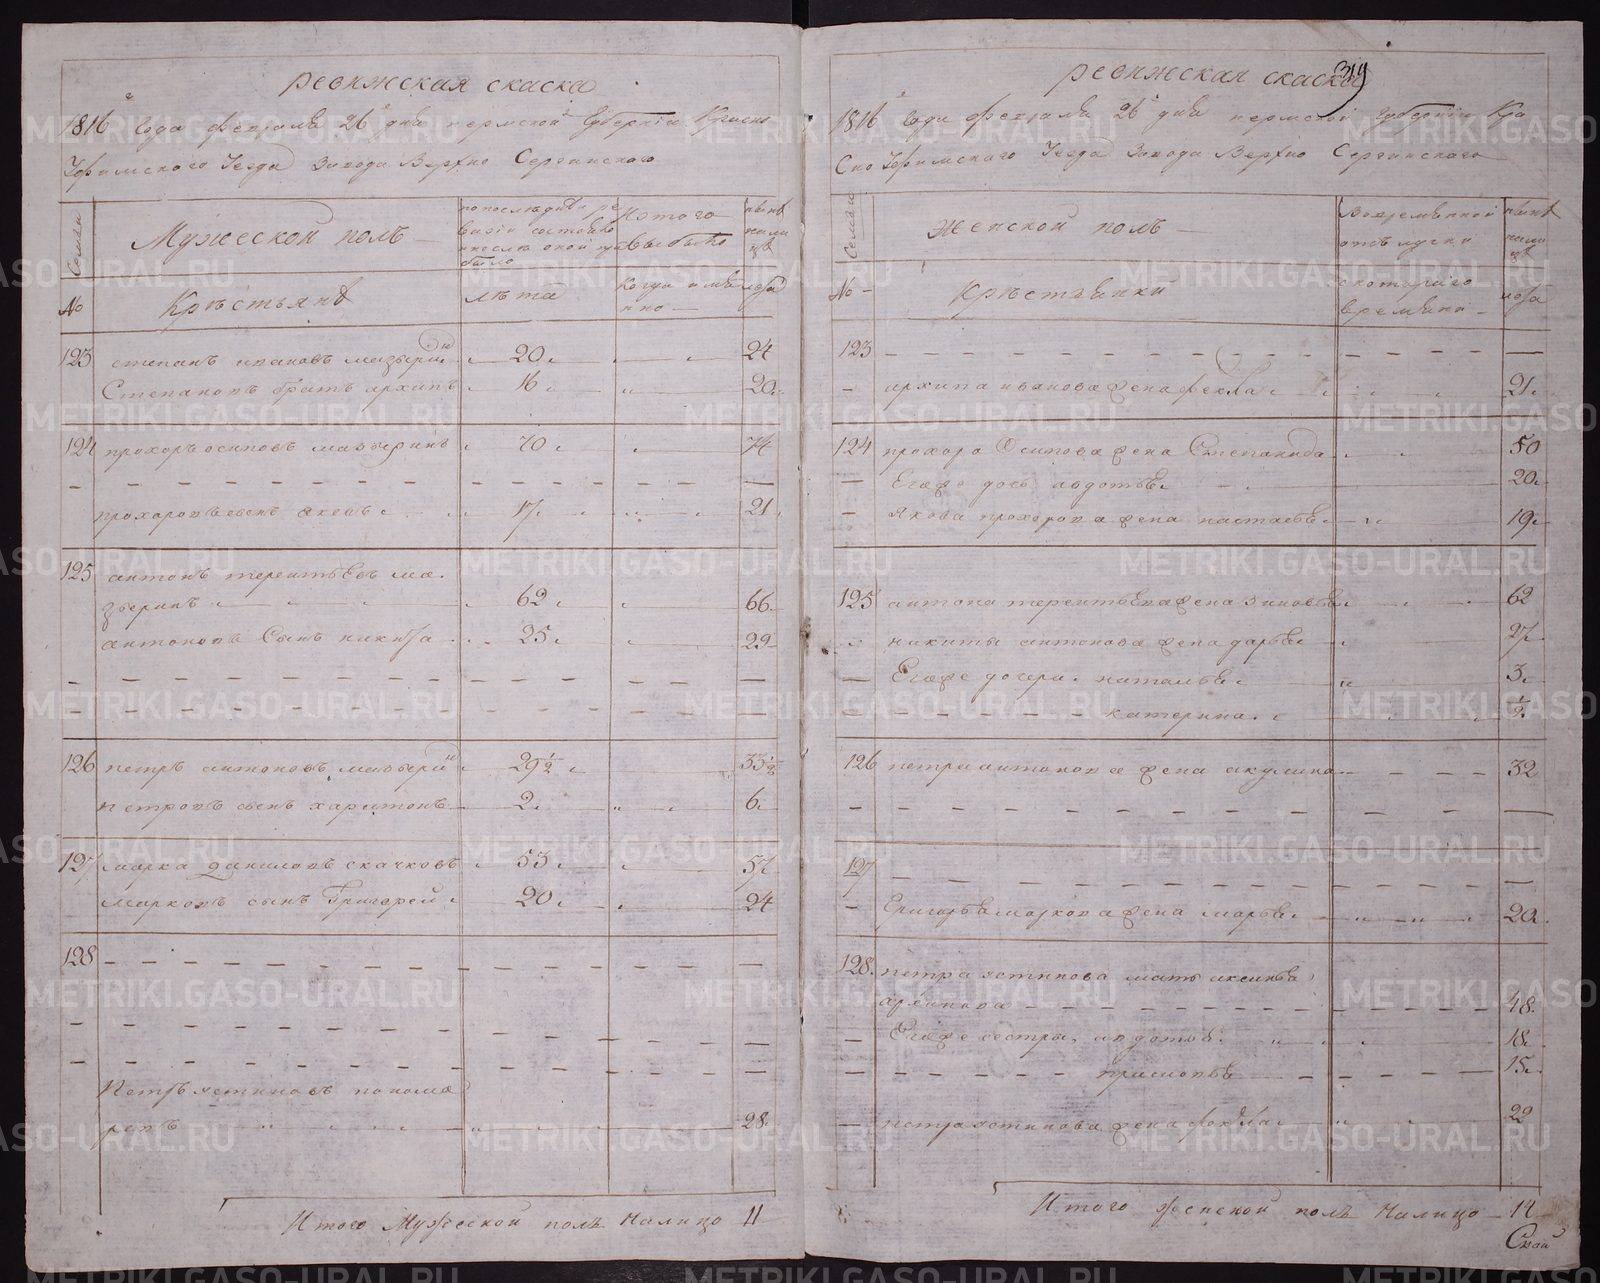 ревижская скаска
1816 года февраля 26 дня пермской Губернии Красно
Уфимского Уезда Завода Верхно Сергинского
Семьи
Мужеской полъ
по последней ре
визии состояло
и после оной
было
Ис того
выбыло
ныне
нали
цо
№
Крестьяне
лета
Когда имя
нно
лета
123 степанъ ивановъ мазырин 20 24
Степановъ братъ архипъ 16 20
124 прохоръ осиповъ мазыринъ 70 74
прохоровъ сынъ яковъ 17 21
125 антонъ терентьевъ ма
зыринъ 62 66
антоновъ Сынъ никита 25 29
126 петръ антоновъ мазырин 29 1/2 33 1/2
петровъ сынъ харитонъ 2 6
127 марка даниловъ скачковъ 53 57
марковъ сынъ Григорей 20 24
128
Петръ устиновъ понома
ревъ 28
Итого Мужеской полъ Налицо 11
ревижская скаска
319
1816 года февраля 26 дня пермской Губернии Кра
Сно Уфимского Уезда Завода Верхно Сергинского
Семьи
Женской полъ
Во временной
отлучке
ныне
нали
цо
№
Крестьянки
с которого
времяни
лета
123
архипа иванова жена фекла 21
124 прохора Осипова жена Степанида 50
Егоже дочь авдотья 20
якова прохорова жена настасья 19
125 антона терентьева жена зиновья 62
никиты антонова жена дарья 27
Егоже дочери наталья 3
катерина 1/2
126 петра антонова жена акулина 32
127
Григорья маркова жена марья 20
128 петра устинова мать аксинья
архипова 48
Егоже сестры авдотья 18
15
петра устинова жена фекла 22
Итого женской полъ Налицо 14
METRIKI.GASO-URAL.RU